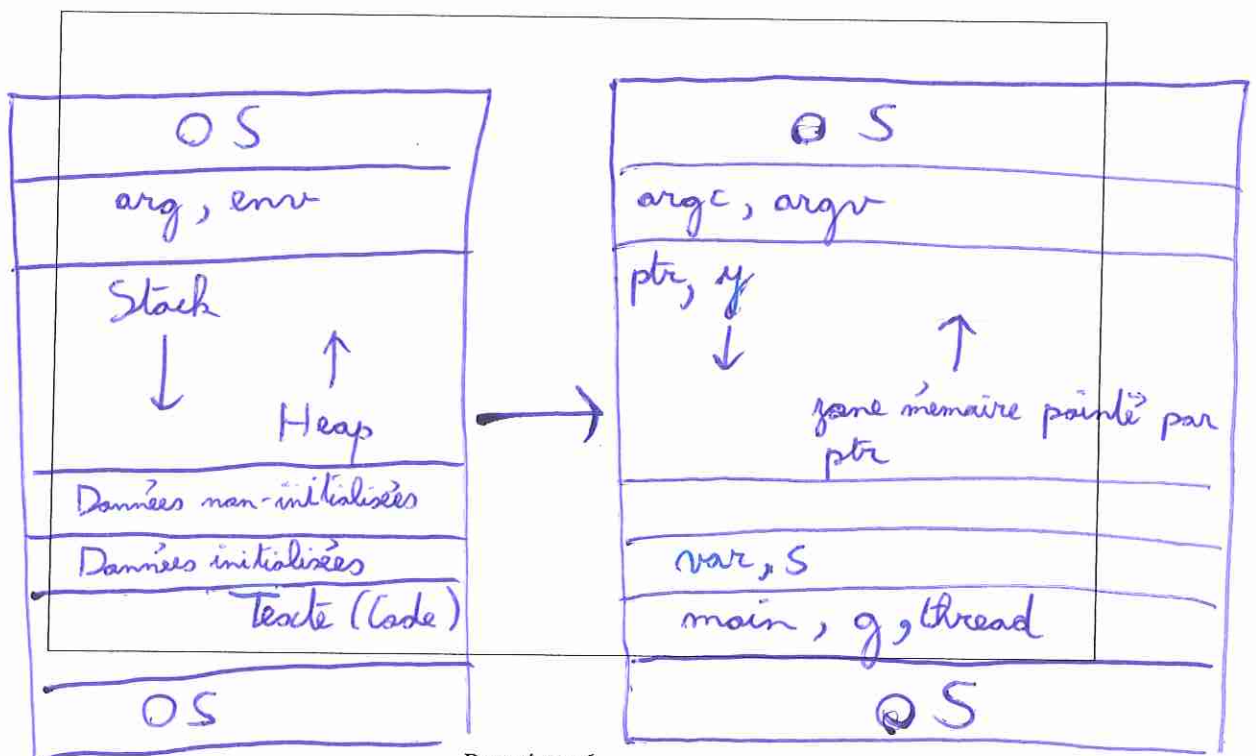 OS
arg, env
Stack
Heap
Données non-initialisées
Données initialisées
Texte (Code)
OS
OS
argc, argv
ptr, y
zone mémoire pointé par
ptr
var, s
main, g, thread
OS